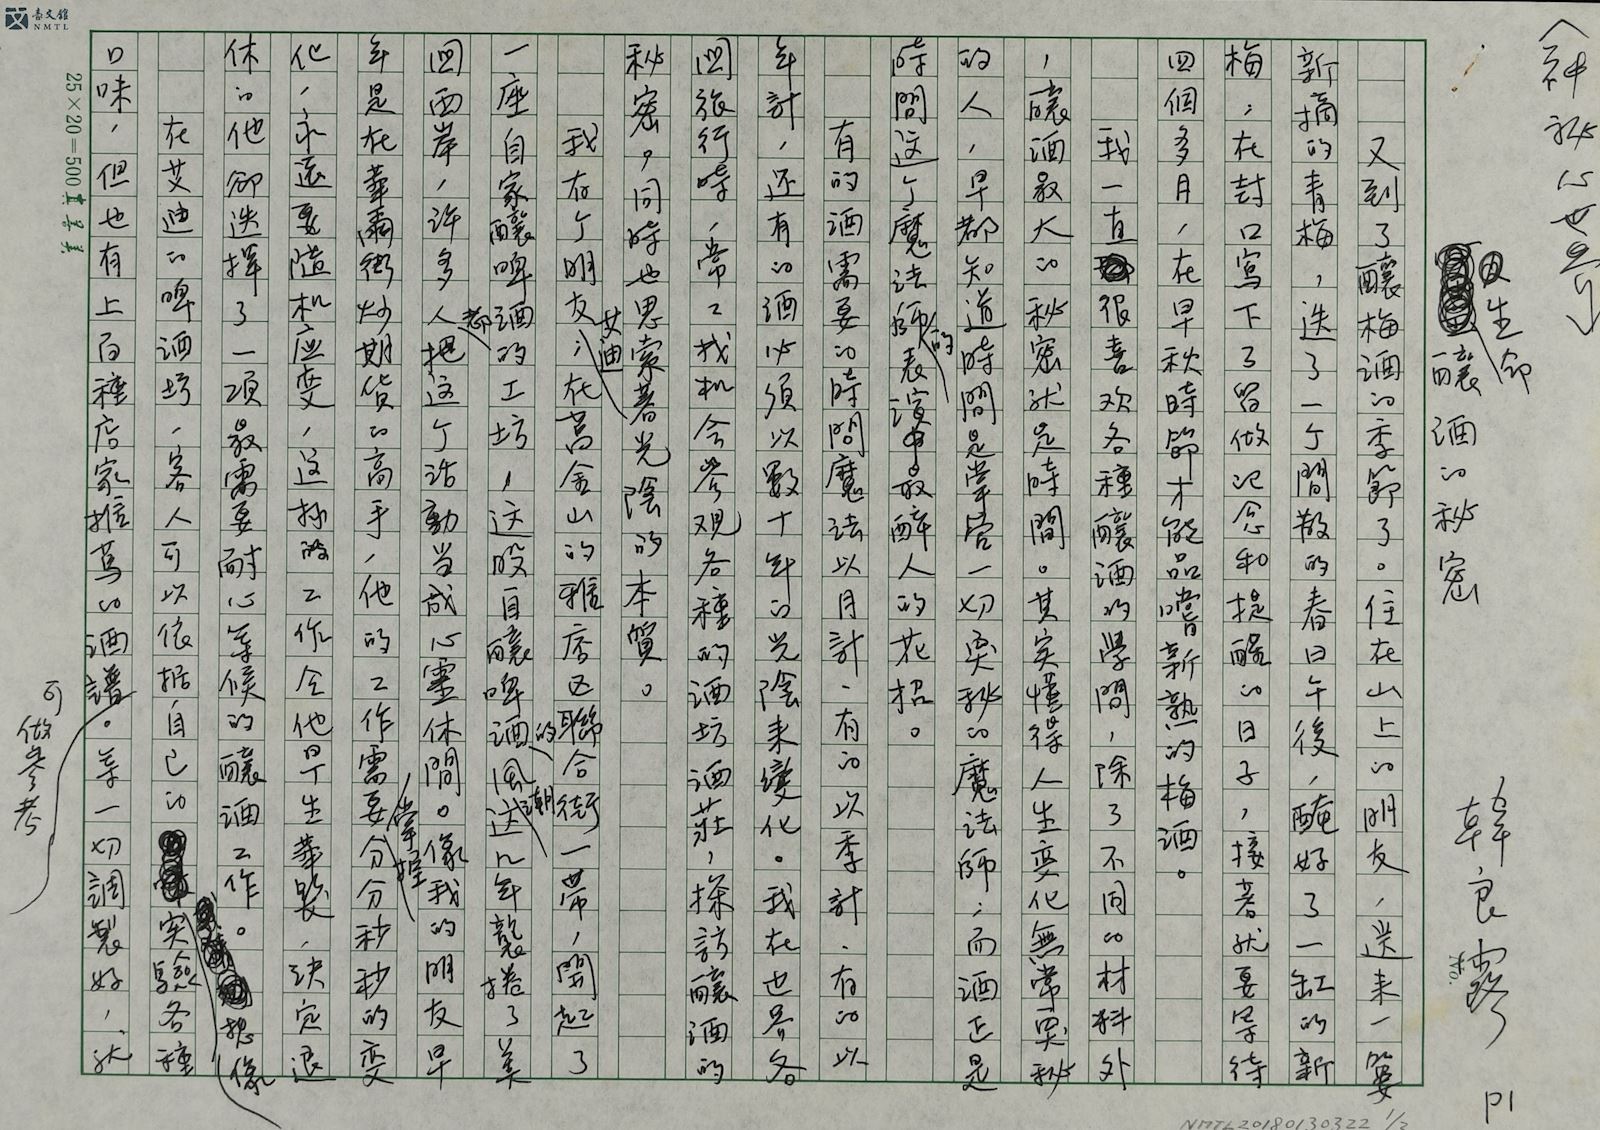 〈神秘心世界〉
生命釀酒の秘密
韓良露
P1
又到了釀梅酒の季節了。住在山上の朋友，送來一簍
新摘的青梅，迭了一个閒散的春日午後，醃好了一缸的新
梅，在封口寫下了留做記念和提醒の日子，接著就要等待
四個多月，在早秋時節才能品嚐新熟的梅酒。
我一直很喜欢各種釀酒的學問，除了不同の材料外
，釀酒最大の秘密就是時間。其实懂得人生变化無常奧秘
的人，早都知道時間是掌管一切奧秘の魔法師，而酒正是
時間这个魔法師的表演中最醉人的花招。
有的酒需要の時間魔法以月計、有の以季計、有の以
年計，还有の酒必須以數十年の光陰來變化。我在世界各
國旅行時，常々找机会參观各種的酒坊酒莊，探訪釀酒的
秘密，同時也思索著光陰的本質。
我有个朋友艾迪，在舊金山的雅痞区聯合街一帶，開起了
一座自家釀啤酒的工坊，这股自釀啤酒的風潮这几年襲捲了美
國西岸，許多人都把这个活動当成心靈休閒。像我的朋友早
年是在華爾街炒期貨の高手，他的工作需要掌握分分秒秒的变
化，永遠要隨机应变，这种的工作令他早生華髮，決定退
休の他卻选擇了一項最需要耐心等候的釀酒工作。
在艾迪の啤酒坊，客人可以依据自己の想像实驗各種
口味，但也有上百種店家推荐の酒譜可做參考。等一切調製好，就
25×20=500
NMTL20180130322 1/2
台文館
NMTL